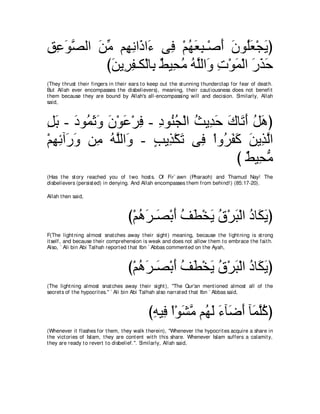 (يَجْعَلُونَ أَصْـبِعَهُمْ فِى ءَاذَانِهِم مِّنَ الصَّوَعِقِ
حَذَرَ الْمَوْتِ وَاللَّهُ مُحِيطٌ بِالْكَـفِرِينَ)
(They thrust their fingers in their ears to keep out the stunning thunderclap for fear of death.
But Allah ever encompasses the disbelievers), meaning, their cautiousness does not benefit
them because they are bound by Allah's all-encompassing will and decision. Similarly, Allah
said,
(هَلُ أَتَاكَ حَدِيثُ الْجُنُودِ - فِرْعَوْنَ وَثَمُودَ - بَلِ
الَّذِينَ كَفَرُوا فِى تَكْذِيبٍ - وَاللَّهُ مِن وَرَآئِهِمْ
مُّحِيطٌ )
(Has the story reached you of two hosts. Of Fir`awn (Pharaoh) and Thamud Nay! The
disbelievers (persisted) in denying. And Allah encompasses them from behind!) (85:17-20).
Allah then said,
(يَكَادُ الْبَرْقُ يَخْطَفُ أَبْصَـرَهُمْ)
F(The lightning almost snatches away their sight) meaning, because the lightning is strong
itself, and because their comprehension is weak and does not allow them to embrace the faith.
Also, `Ali bin Abi Talhah reported that Ibn `Abbas commented on the Ayah,
(يَكَادُ الْبَرْقُ يَخْطَفُ أَبْصَـرَهُمْ)
(The lightning almost snatches away their sight), "The Qur'an mentioned almost all of the
secrets of the hypocrites." `Ali bin Abi Talhah also narrated that Ibn `Abbas said,
(كُلَّمَآ أَضَآءَ لَهُم مَّشَوْاْ فِيهِ)
(Whenever it flashes for them, they walk therein), "Whenever the hypocrites acquire a share in
the victories of Islam, they are content with this share. Whenever Islam suffers a calamity,
they are ready to revert to disbelief.". Similarly, Allah said,